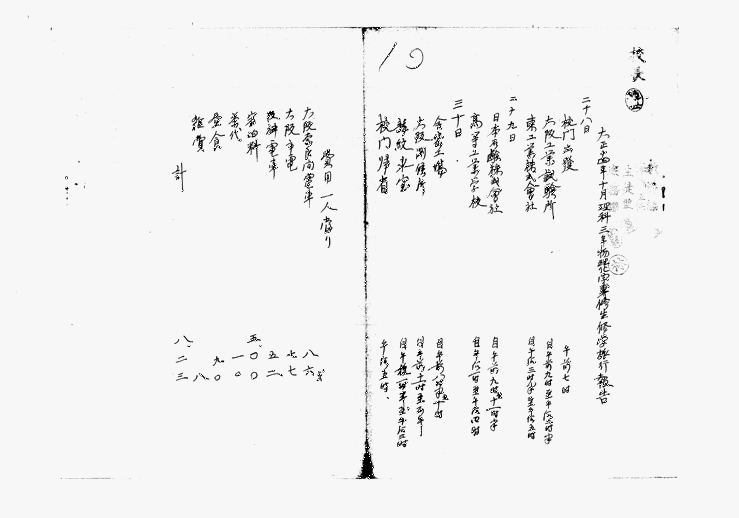 校長
10
大正十四年十月理科三年物理化学専修生修学旅行報告
二十八日
校門出発 午前七時
大阪工業試験所 自午前九時至午后二時半
東工業株式會社 自午后三時半至午后五時
二十九日
日本 株式會社 自午前九時至十一時半
高等工業学校 自午后一時至午后四時
三十日
工場 自午前八時半至十時
大阪測候所 自午前十一時至正午
自午後一時半至午后三時
校門帰着 午后五時、
費用 一人当り
大阪奈良間電車 八六
大阪市電 七七
阪神電車 五二
宿泊料 五、〇〇
茶代 一〇
昼食 九〇
雑費 八
計 八、二三